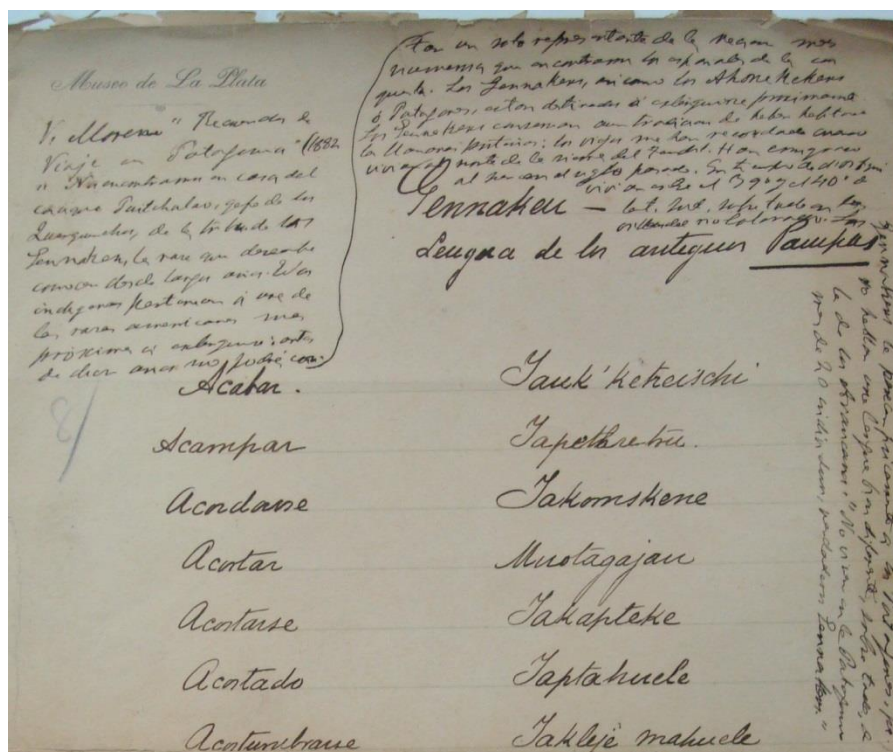 Museo de La Plata
V. Moreno "Recuerdos de
Viaje en Patagonia" (1882
"Nos encontramos en casa del
cacique Puitchalao, gefe de los
de la tribu de los
Gennakens, la raza que deseaba
conocer desde largos años. Estos
indígenas pertenecen á una de
las razas americanas mas
próximas á extinguirse; antes
de diez años no podré, con
tar un solo representante de la nacion mas
numerosa que encontraron los españoles de la con
quista. Los Gennakens, asi como los Ahonekekens
ó Patagones, estan destinados á extinguirse proximamente
Los Gennakens conservan aun tradicion de haber habitado
las llanuras; los viejos me han recordado cuando
vivian al norte de la sierra del Tandil. Han emigrado
al sur en el siglo pasado. En tiempo de
vivian entre el 39º y el 40º de
lat. Sur, sobre todo en las
orillas del rio Colorado. Los
Gennaken —
Lengua de los antiguos Pampas
hablan una lengua bien diferente, sobre todo, de
la de los Araucanos." No viven en la Patagonia
mas de 20 indios verdaderos Gennaken."
Acabar. Iauk'ketreischi
Acampar
Acordarse Iakomskene
Acortar Muotagajau
Acostarse Iakapteke
Acostado Iaptahuele
Acostumbrarse Iaklejë mahuele